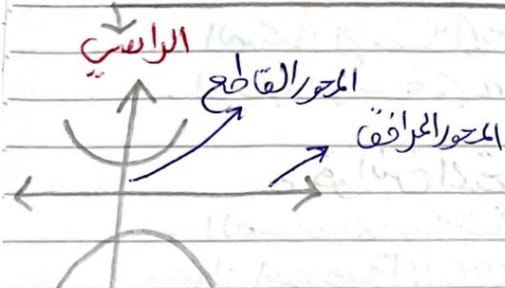 الرأسي
المحور القاطع
المحور المرافق